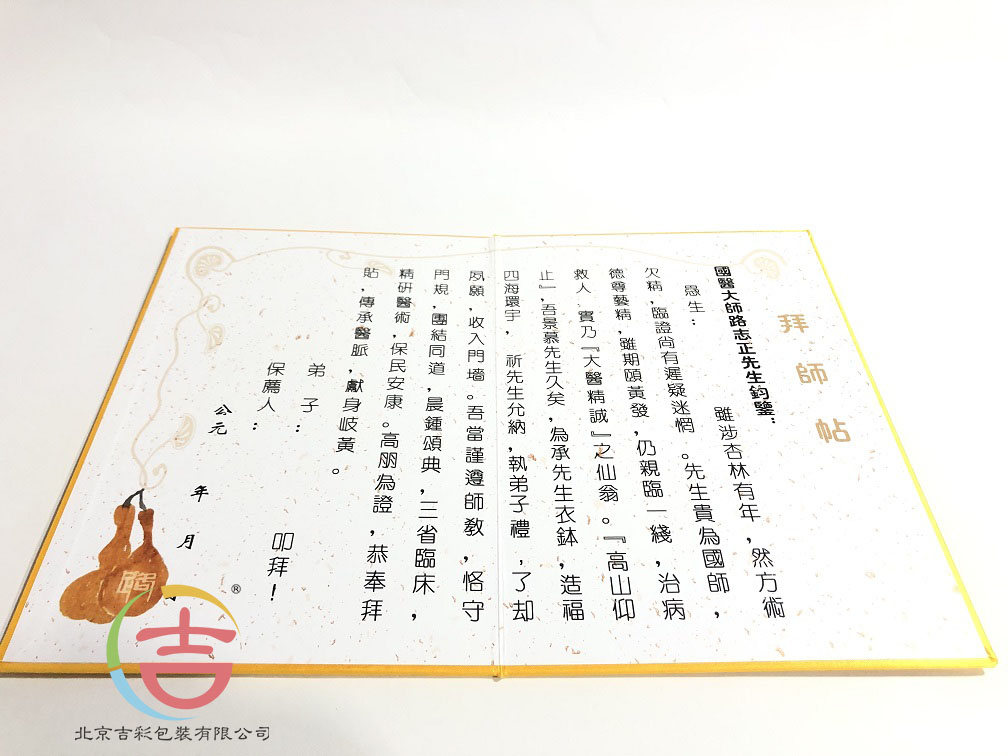 拜師帖
國醫大師路志正先生鈞鑒：
愚生： 雖涉杏林有年，然方術
欠精，臨證尚有遲疑迷惘。先生貴為國師，
德尊藝精，雖期頤黃發，仍親臨一綫，治病
救人，實乃『大醫精誠』之仙翁。『高山仰
止』，吾景慕先生久矣，為承先生衣鉢，造福
四海環宇， 祈先生允納，執弟子禮，了却
夙願，收入門墻。吾當謹遵師教，恪守
門規，團結同道，晨鍾頌典，三省臨床，
精研醫術，保民安康。高丽為證，恭奉拜
貼，傳承醫脈，獻身岐黃。
弟子：
保薦人： 叩拜！
公元 年 月
®
吉
北京吉彩包裝有限公司